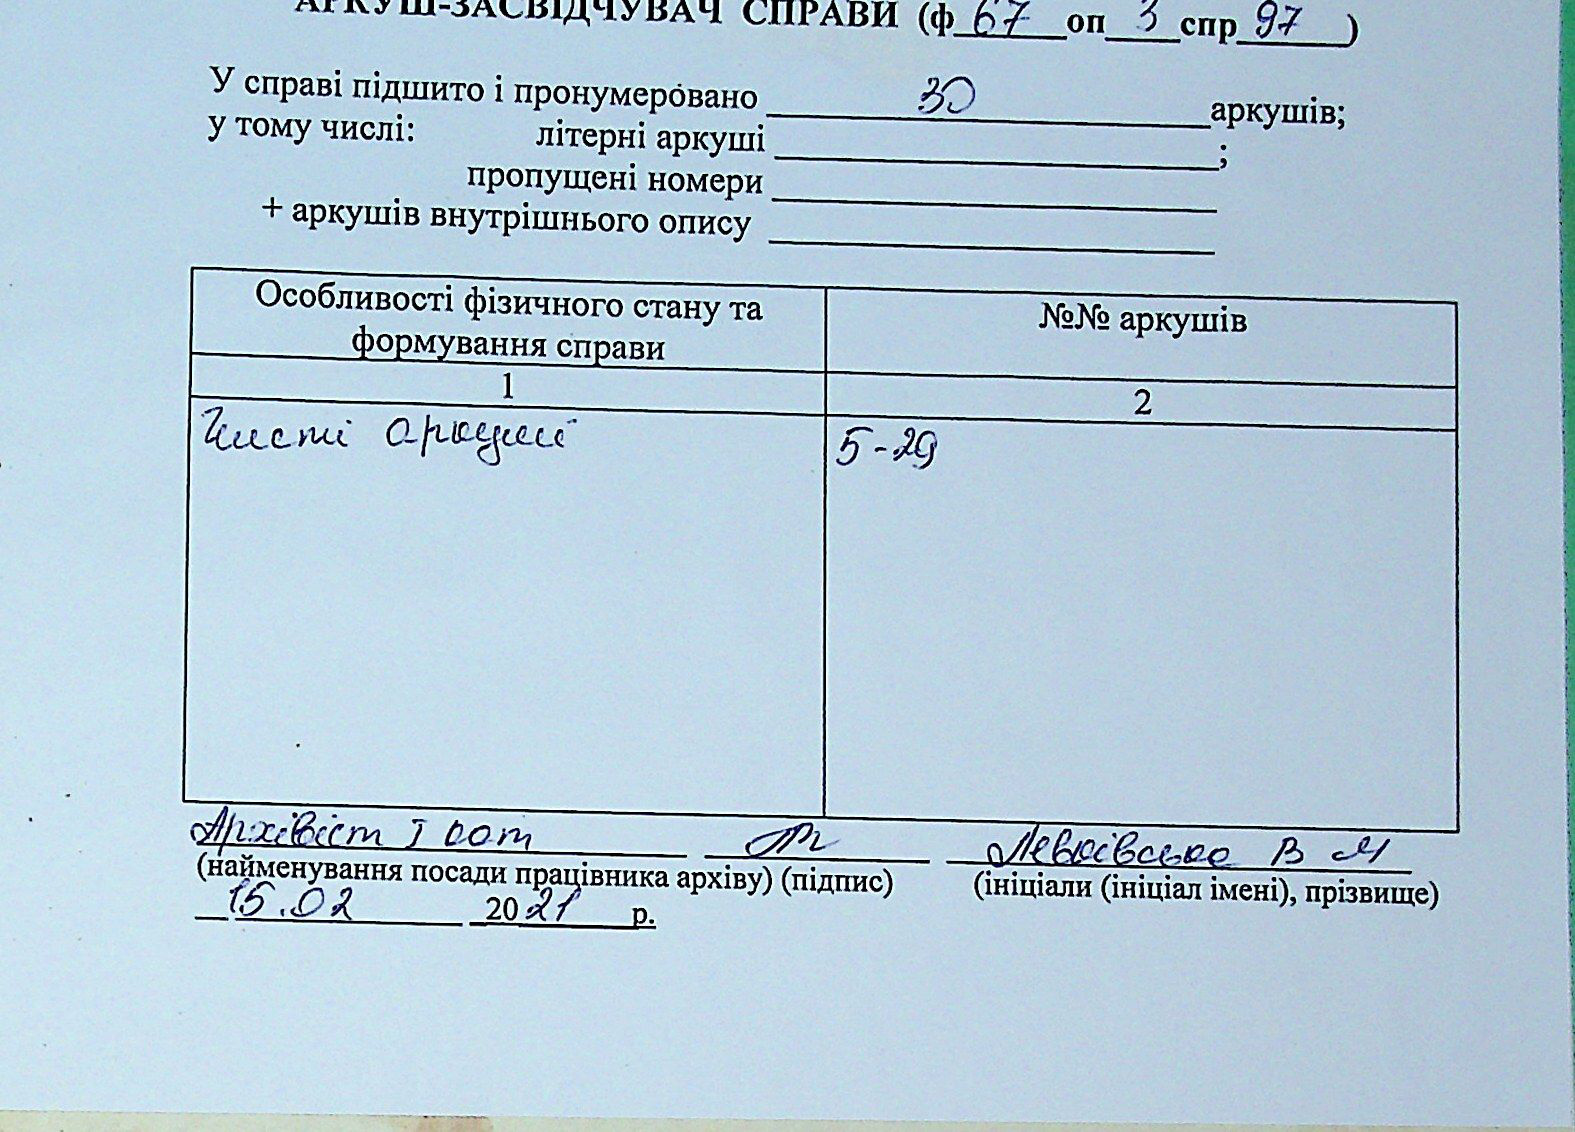 АРКУШ-ЗАСВІДЧУВАЧ СПРАВИ (ф 67 оп 3 спр 97 )
У справі підшито і пронумеровано 30 аркушів;
у тому числі: літерні аркуші ;
пропущені номери
+ аркушів внутрішнього опису
Особливості фізичного стану та
формування справи
№№ аркушів
1
2
Чисті аркуші
5-29
Архівіст І кат В М
(найменування посади працівника архіву) (підпис) (ініціали (ініціал імені), прізвище)
15.02 2021 р.